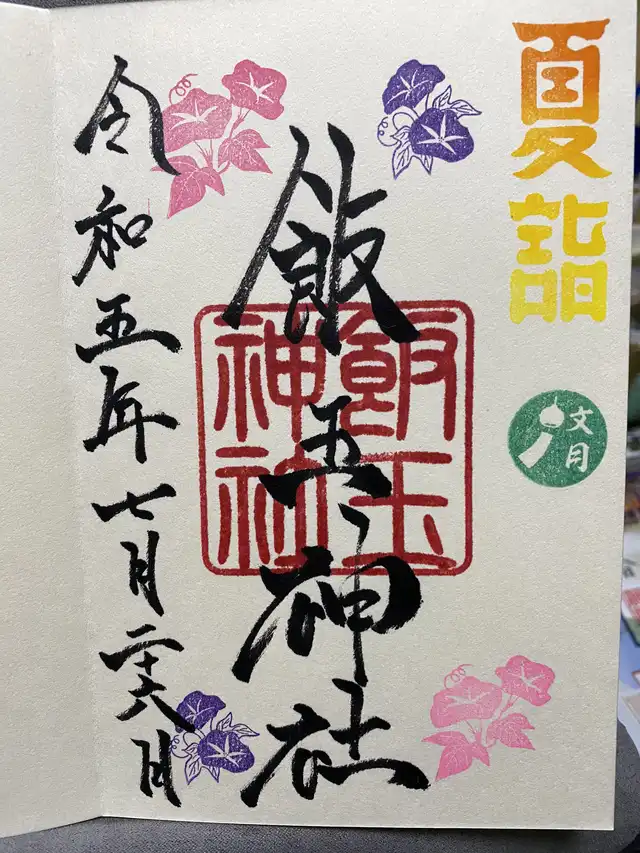 夏詣
文月
飯玉神社
飯玉神社
令和五年七月二十六日